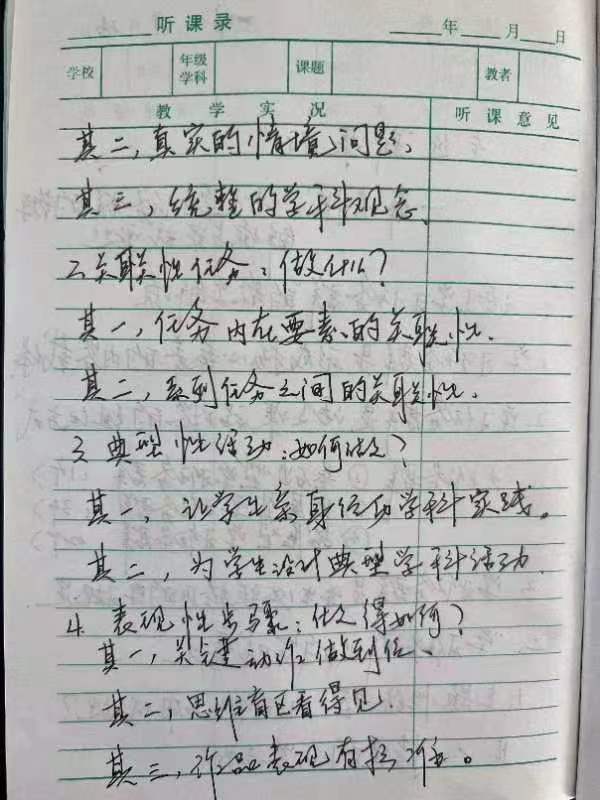 听课录 年 月 日
学校 年级学科 课题 教者
教学实况 听课意见
其二,真实的情境问题、
其三,统整的学科观念
2.关联性任务:做什么?
其一,任务内在要素的关联性.
其二,系列任务之间的关联性.
3.典型性活动:如何做?
其一,让学生亲身经历学科实践。
其二,为学生设计典型学科活动.
4.表现性步骤:做得如何?
其一,关键动作做到位.
其二,思维看得见.
其三,作品表现有标准。